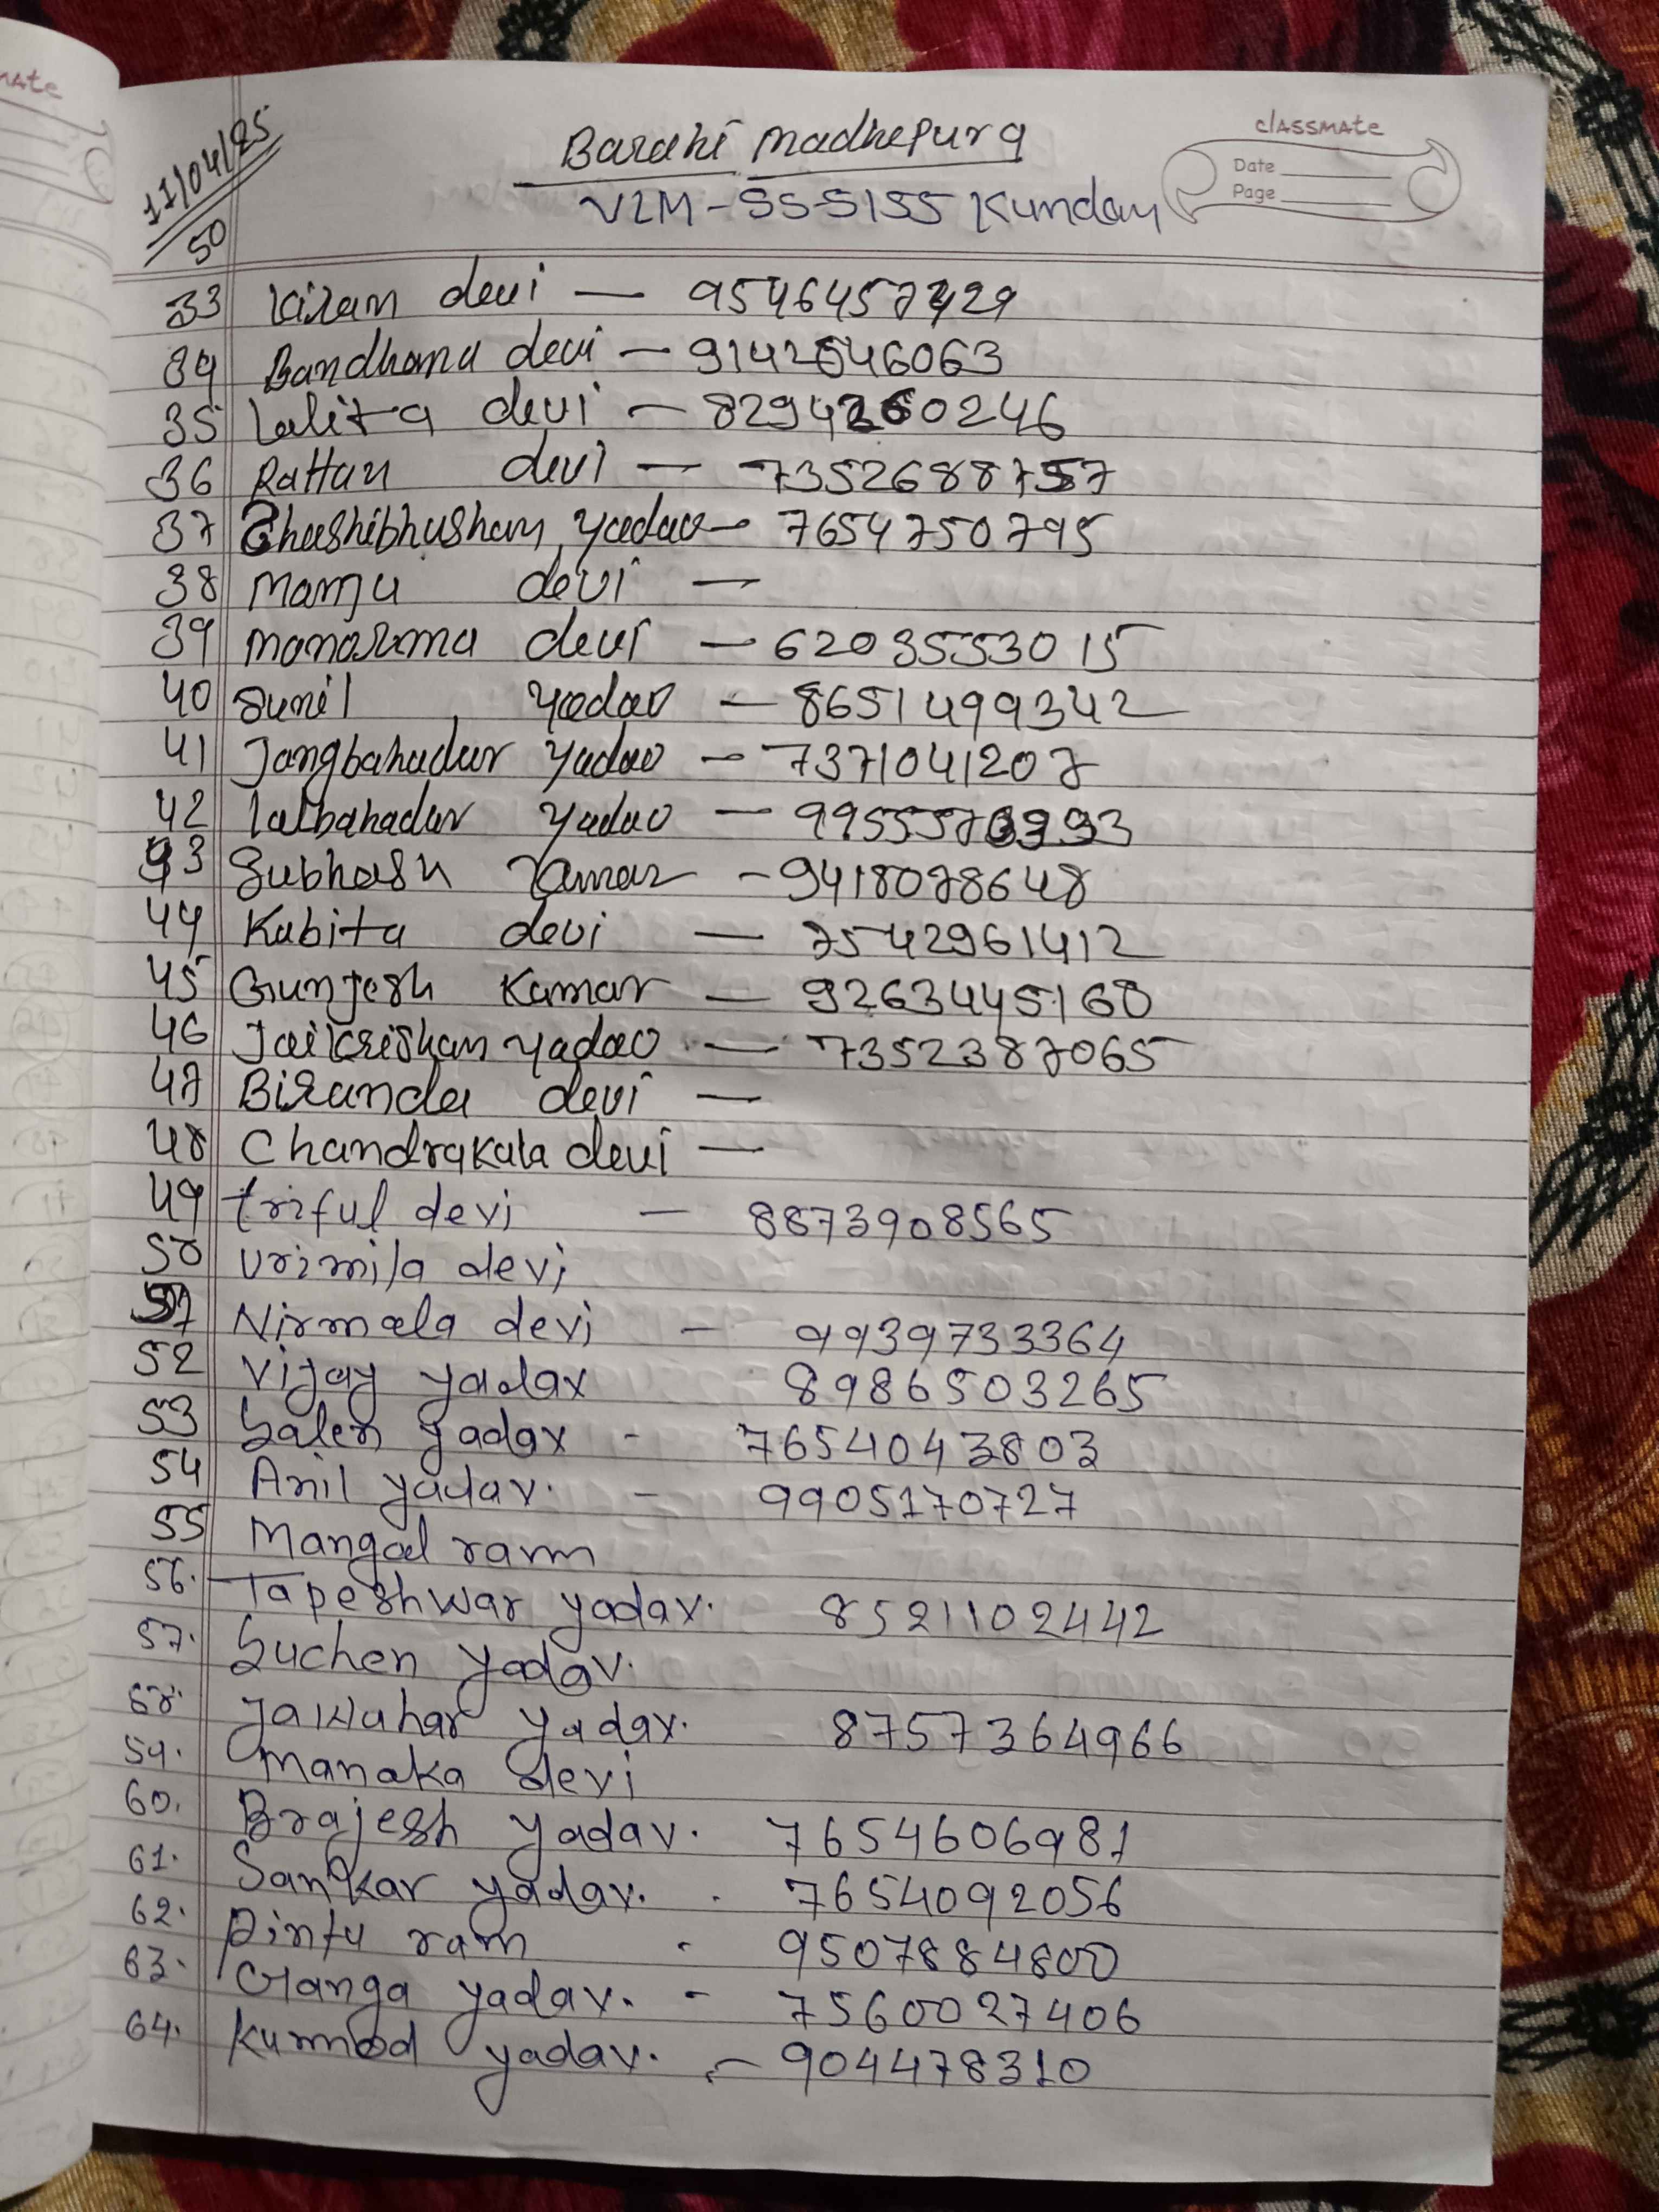 11/04/25
50
Barahi Madhepura
classmate
Date
Page
VLM-SS-5155 Kundan
33 Kiran devi — 9546457429
34 Bandhana devi — 9142546063
35 Lalita devi — 8294260246
36 Rattan devi — 7352688757
37 Shashibhushan yadav — 7654750795
38 Manju devi —
39 Manorma devi — 6203553015
40 Sunil yadav — 8651499342
41 Jangbahadur yadav — 7371041207
42 lalbahadur yadav —
43 Subhash Kumar - 9418078648
44 Kabita devi — 7542961412
45 Gunjesh Kumar — 9263445160
46 Jaikrishan yadav — 7352387065
47 Biranda devi —
48 Chandrakala devi —
49 triful devi — 8873908565
50 Urimila devi
51 Nirmala devi — 9939733364
52 Vijay yadav 8986503265
53 Salen yadav - 7654043803
54 Anil yadav. — 9905170727
55 Mangal ram
56. Tapeshwar yadav. 8521102442
57. Suchen yadav.
58. Jawahar yadav. - 8757364966
59. Manaka devi
60. Brajesh yadav. 7654606981
61. Sankar yadav. . 7654092056
62. Pintu ram - 9507884800
63. Ganga yadav. - 7560027406
64. Kumod yadav. - 904478310